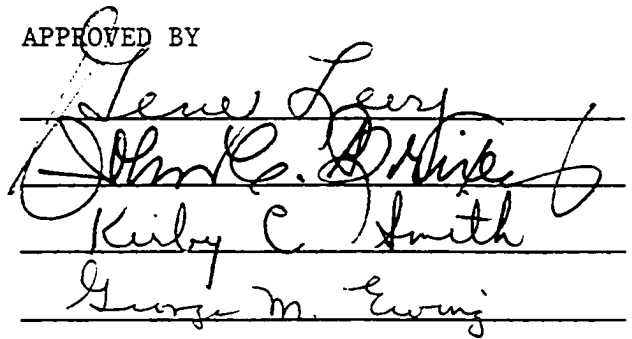 APPROVED BY
Gene Levy
John C. Brixey
Kirby C. Smith
George M. Ewing